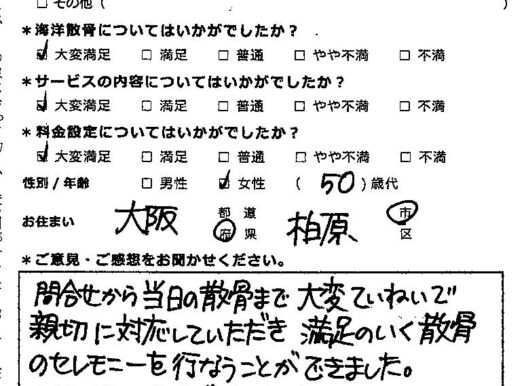 □ その他（　　　）
＊海洋散骨についてはいかがでしたか？
☑ 大変満足　□ 満足　□ 普通　□ やや不満　□ 不満
＊サービスの内容についてはいかがでしたか？
☑ 大変満足　□ 満足　□ 普通　□ やや不満　□ 不満
＊料金設定についてはいかがでしたか？
☑ 大変満足　□ 満足　□ 普通　□ やや不満　□ 不満
性別 / 年齢　□ 男性　☑ 女性　（ 50 ）歳代
お住まい　大阪　都 道 府 県　柏原　市 区
＊ご意見・ご感想をお聞かせください。
問合せから当日の散骨まで 大変ていねいで
親切に対応していただき 満足のいく散骨
のセレモニーを行なうことができました。